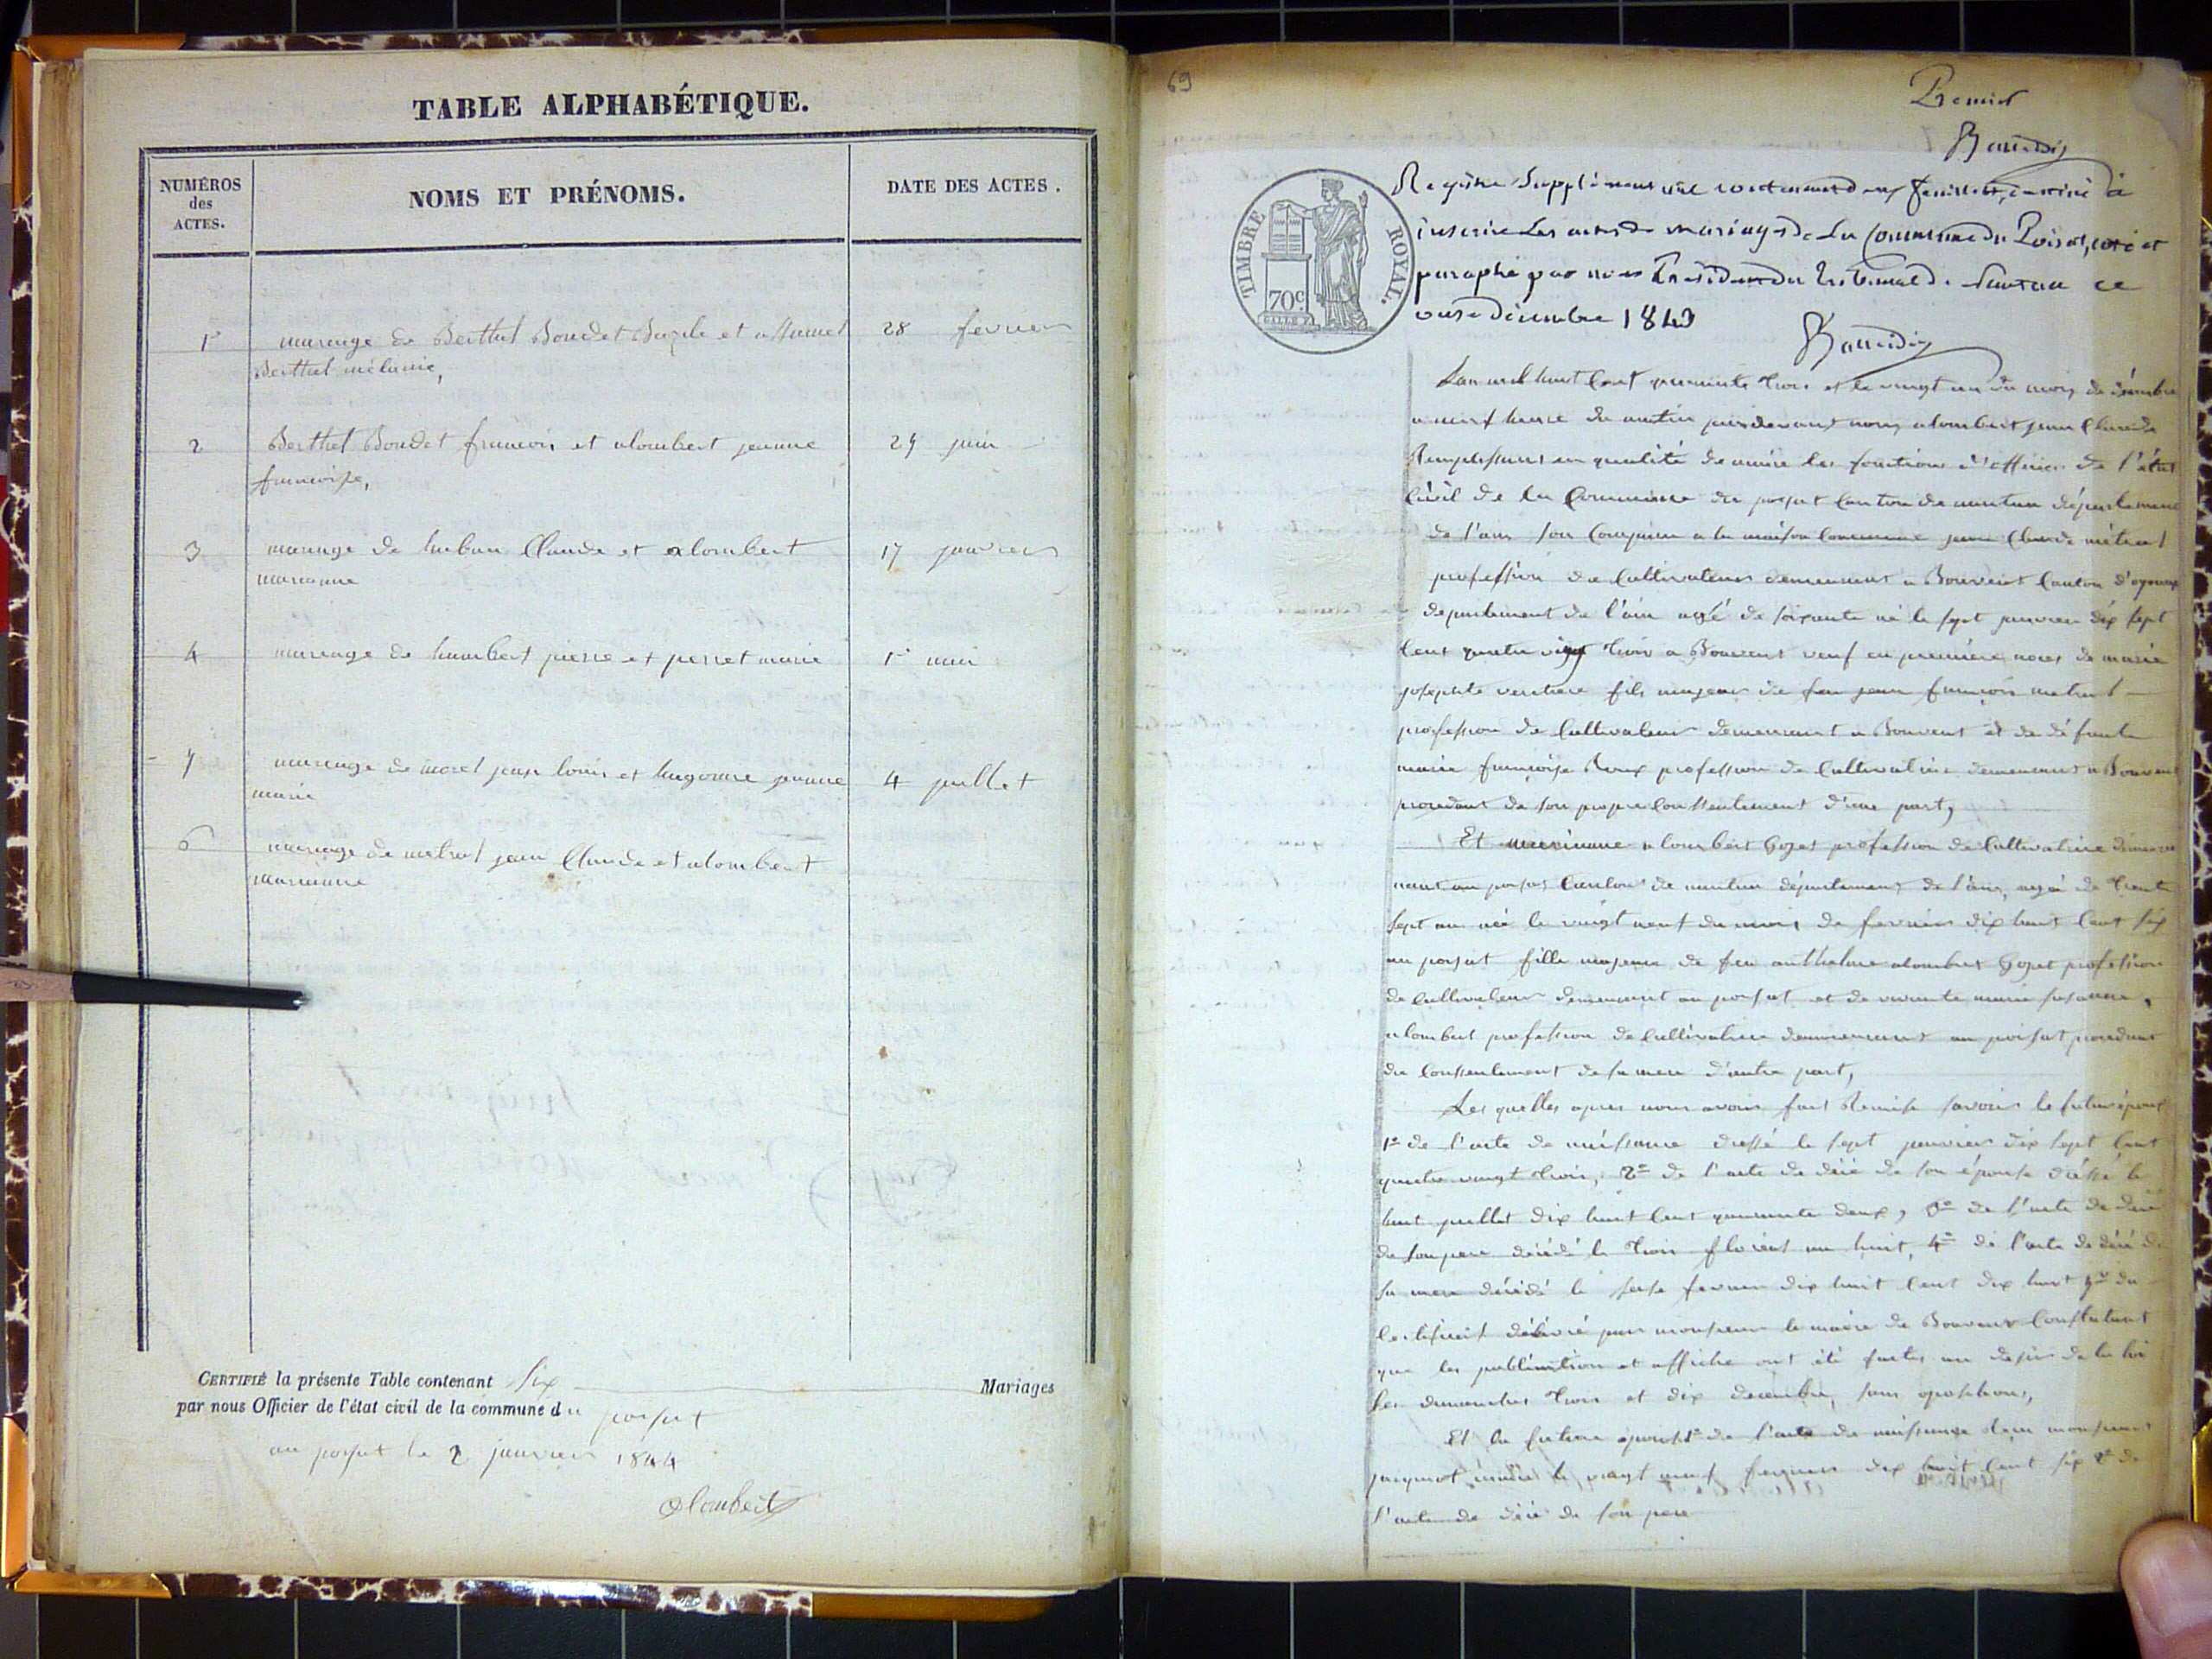 TABLE ALPHABÉTIQUE.
NUMÉROS
des
ACTES.
NOMS ET PRÉNOMS.
DATE DES ACTES.
1r mariage de Berthet Boudet Bazile et 28 fevrier
Berthet mélanie,
2 Berthet Boudet francois et alombert jeanne 24 juin
francoise,
3 mariage de Claude et alombert 17 janvier
marianne
4 mariage de humbert pierre et perret marie 1r mai
mariage de morel jean louis et hugonne jeanne 4 juillet
marie
6 mariage de metrat jean Claude et alombert
marianne
CERTIFIÉ la présente Table contenant Six Mariages
par nous Officier de l'état civil de la commune du poisat
au poisat le 2 janvier 1844
Alombert
69
Premier
TIMBRE ROYAL.
70c
Registre Supplémentaire contenant deux feuillets, destiné à
inscrire les actes de mariage de la commune du Poisat, coté et
paraphé par nous Président du Tribunal de Nantua ce
onze décembre 1843
L'an mil huit Cent quarante trois et le vingt un du mois de décembre
a neuf heure du matin pardevant nous alombert jean Claude
Remplissant en qualité de maire les fonctions d'officier de l'état
Civil de la Commune du poizat Canton de nantua département
de l'ain son comparu a la maison Commune jean Claude métrat
profession de Cultivateur demeurant a Bouvent Canton d'oyonnax
departement de l'ain agé de soixante né le sept janvier dix sept
Cent quatre vingt trois a Bouvent veuf en première noces de marie
josephte fils majeur de feu jean francois metrat
profession de Cultivateur demeurant a Bouvent et de défunte
marie francoise Roux profession de Cultivatrice demeurant a Bouvent
procedant de son propre Consentement d'une part,
Et marianne alombert Gozet profession de Cultivatrice
au poizat Canton de nantua département de l'ain, agée de trente
sept an née le vingt neuf du mois de fevrier dix huit Cent six
au poizat fille majeure de feu anthelme alombert Gozet profession
de Cultivateur demeurant au poizat et de vivante marie susanne,
alombert profession de Cultivatrice demeurant au poizat procedant
du Consentement de sa mere d'autre part,
Les quelles apres nous avoir fait Remise savoir le futur époux
1° de l'acte de naissance dressé le sept janvier dix sept Cent
quatre vingt trois, 2° de l'acte de décé de son épouse le
huit juillet dix huit Cent quarante deux, 3° de l'acte de décé
de son pere décédé le trois floréal an huit, 4° de l'acte de décé de
sa mere décédé le seize fevrier dix huit Cent dix huit 5° du
Certificat délivré par monsieur le maire de Bouvent Constatant
que les publication et affiche ont été faites au desir de la loi
les dimanches trois et dix decembre, sans oposition,
Et la future épouse 1° de l'acte de naissance
le vingt neuf fevrier dix huit Cent six 2° de
l'acte de décé de son pere